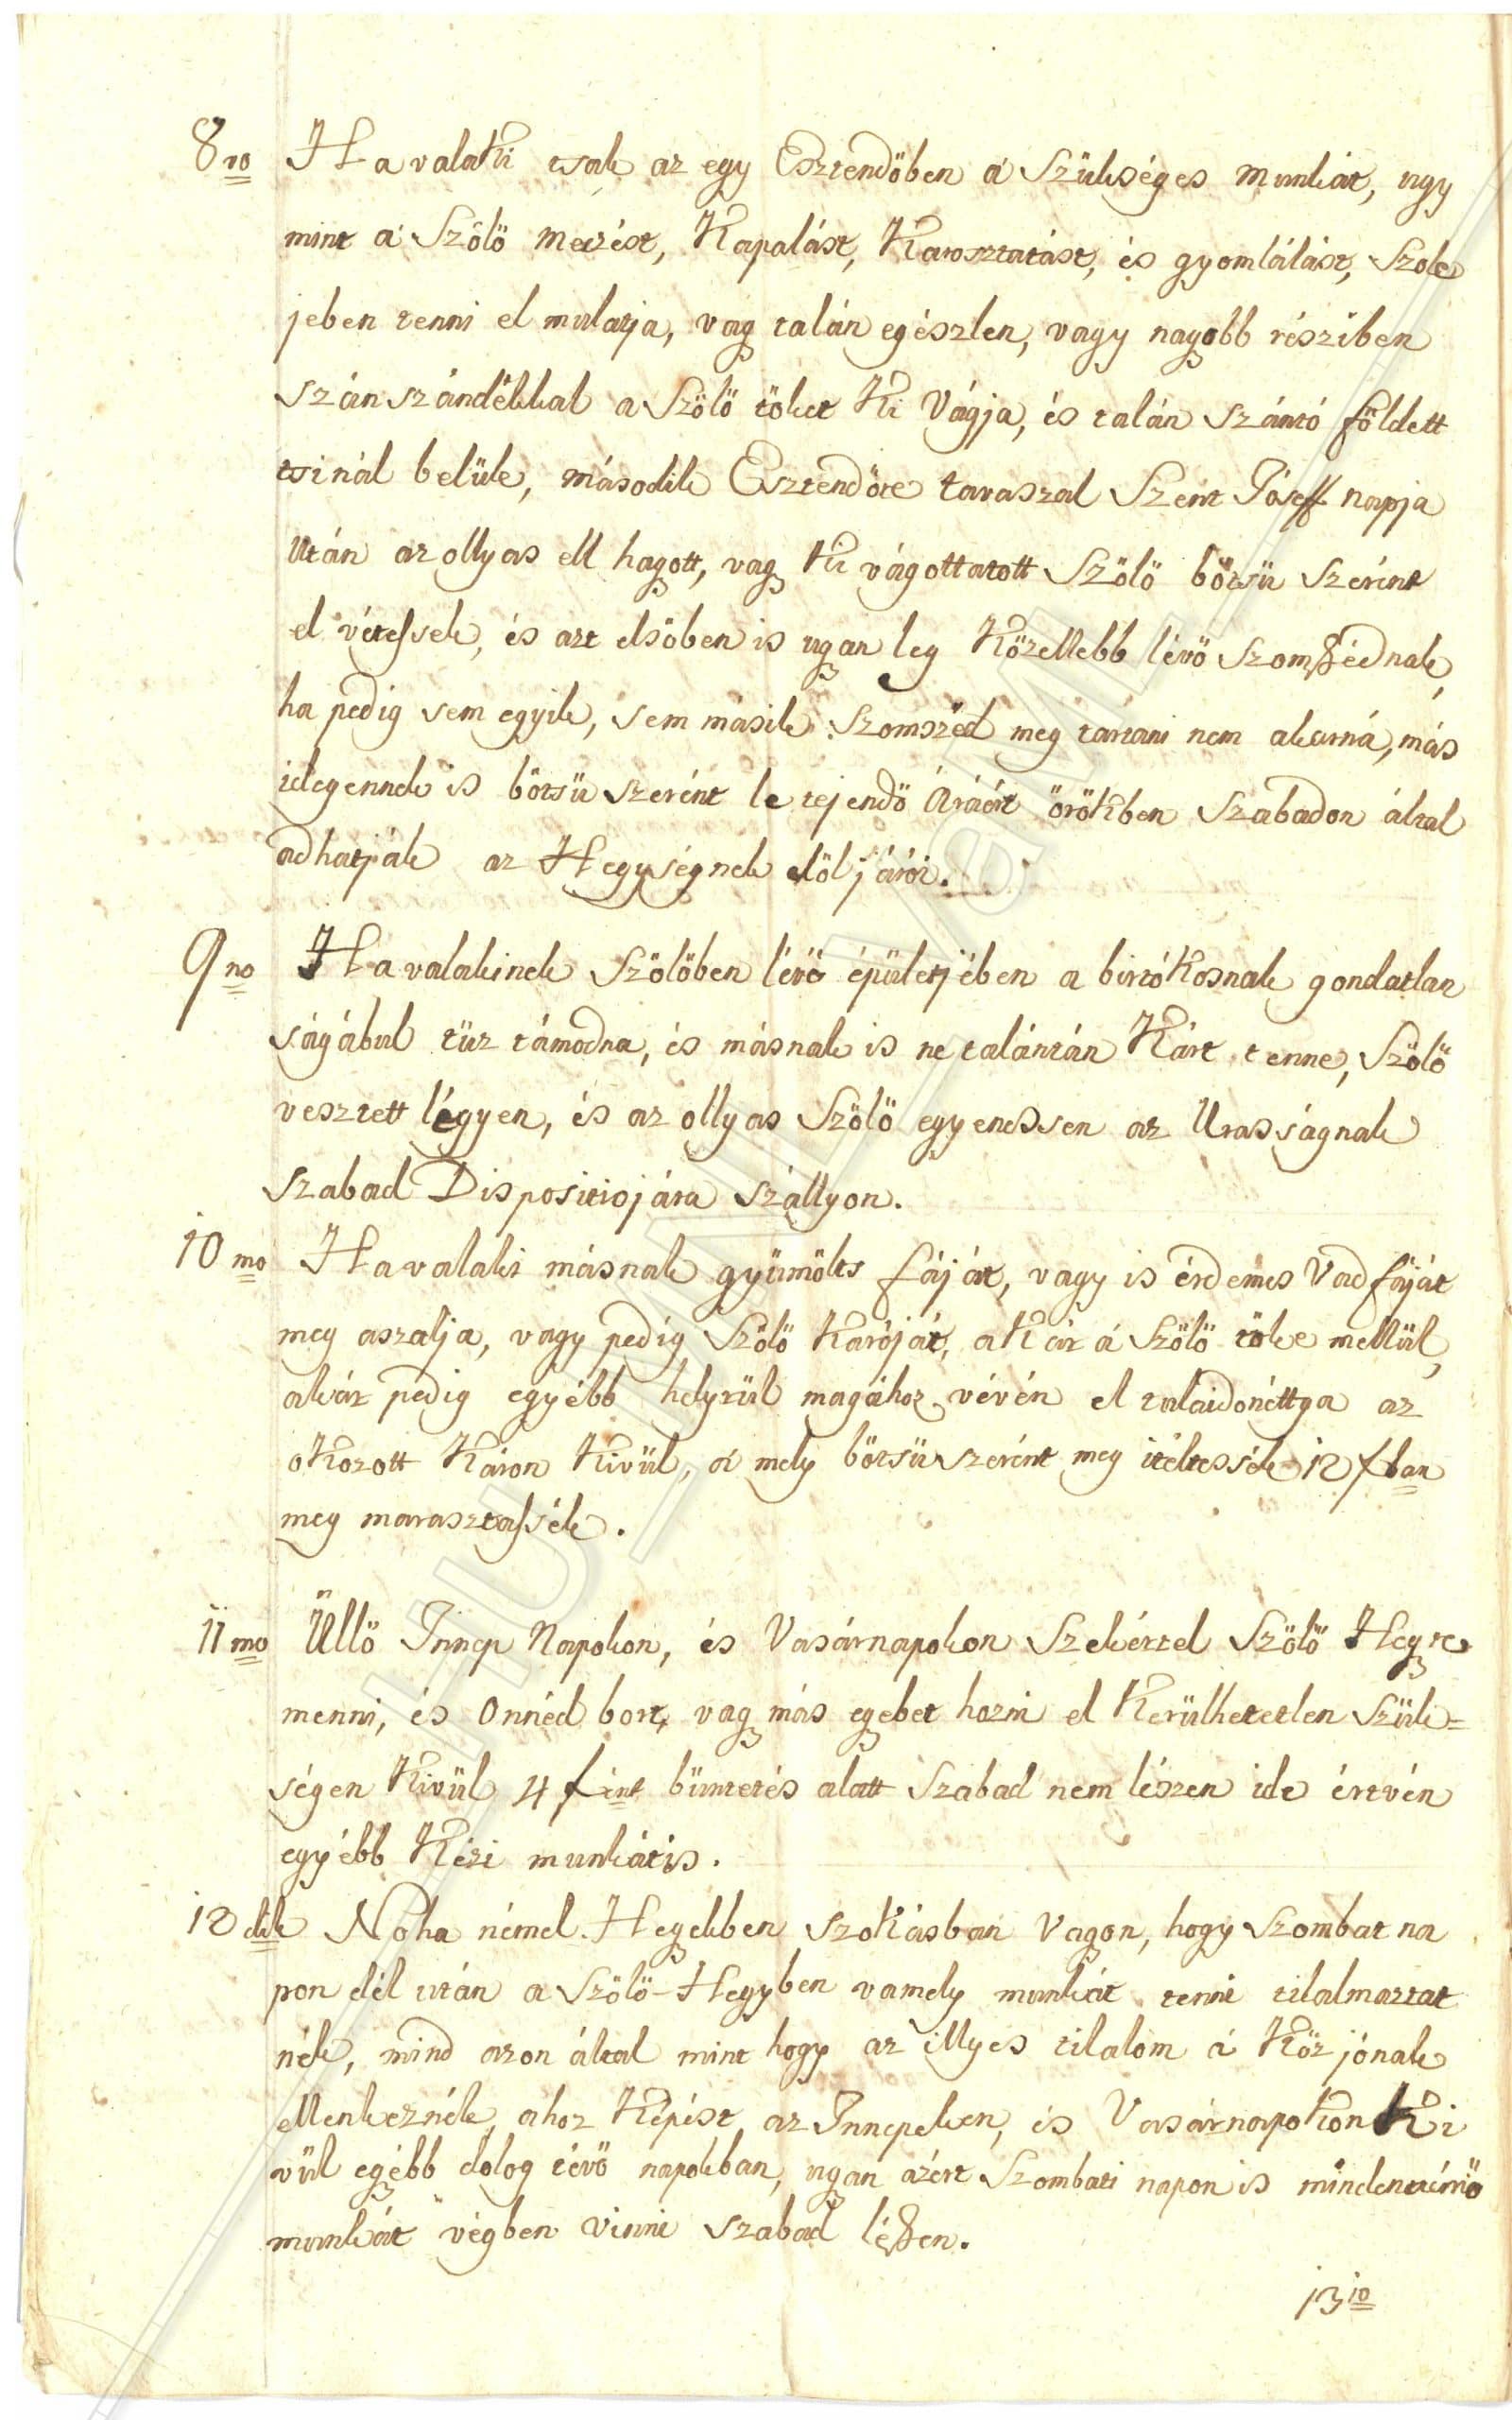 8vo Ha valaki tsak az egy Esztendőben á Szükséges munkát, ugy
mint á Szőlő Meczést, Kapalást, Karosztatást, és gyomlálást, Szőle
jeben tenni el mulatja, vagy talán egészlen, vagy nagyobb résziben
szán szándékkal a Szőlő tőket Ki Vágja, és talán szántó földett
tsinál belüle, második Esztendőre tavaszal Szent Jóseff napja
Után az ollyas ell hagyott, vagy Ki vágottatott Szőlő bötsü szerént
el vétessek, és azt elsőben is ugyan leg Közellebb lévő szomszédnak,
ha pedig sem egyik, sem másik Szomszéd meg tartani nem akarná, más
idegennek is bötsü szerént le tejendő Áráért örökben Szabadon által
adhatják az Hegységnek elöljárói.
9no Ha valakinek Szőlőben lévő épületjében a birtókosnak gondatlan
ságábul tüz támodna, és másnak is ne talántán Kárt tenne, Szőlő
vesztett légyen, és az ollyas Szőlő egyenessen az Urasságnak
szabad Dispositiojára szállyon.
10mo Ha valaki másnak gyümölts fáját, vagy is érdemes Vad fáját
meg aszalja, vagy pedig Szőlő Karóját, aKár á Szőlő töke mellül,
akár pedig egyébb helyrül magához vévén el tulaidonéttya az
oKozott Káron Kivül, á mely bötsü szerént meg itéltessék 12 fban
meg marasztassék.
11mo Üllő Innep Napokon, és Vasárnapokon Szekérrel Szőlő Hegyre
menni, és Onnéd bort, vagy más egyebet hozni el Kerülhetetlen Szük=
ségen Kivül 4 fint büntetés alatt Szabad nem lészen ide értvén
egyébb Kézi munkátis.
12dik Noha némel Hegyekben szoKásban Vagyon, hogy Szombat na
pon dél után a Szőlő-Hegyben vamely munkát tenni tilalmaztat
nék, mind azon által mint hogy az illyes tilalom á Köz jónak
ellenkeznék, ahoz Képést az Innepeken, és VasárnapoKon Ki
vül egyébb dolog tévő napokban, ugyan azért Szombati napon is mindennémö
munkát végben vinni szabad lészen.
13io